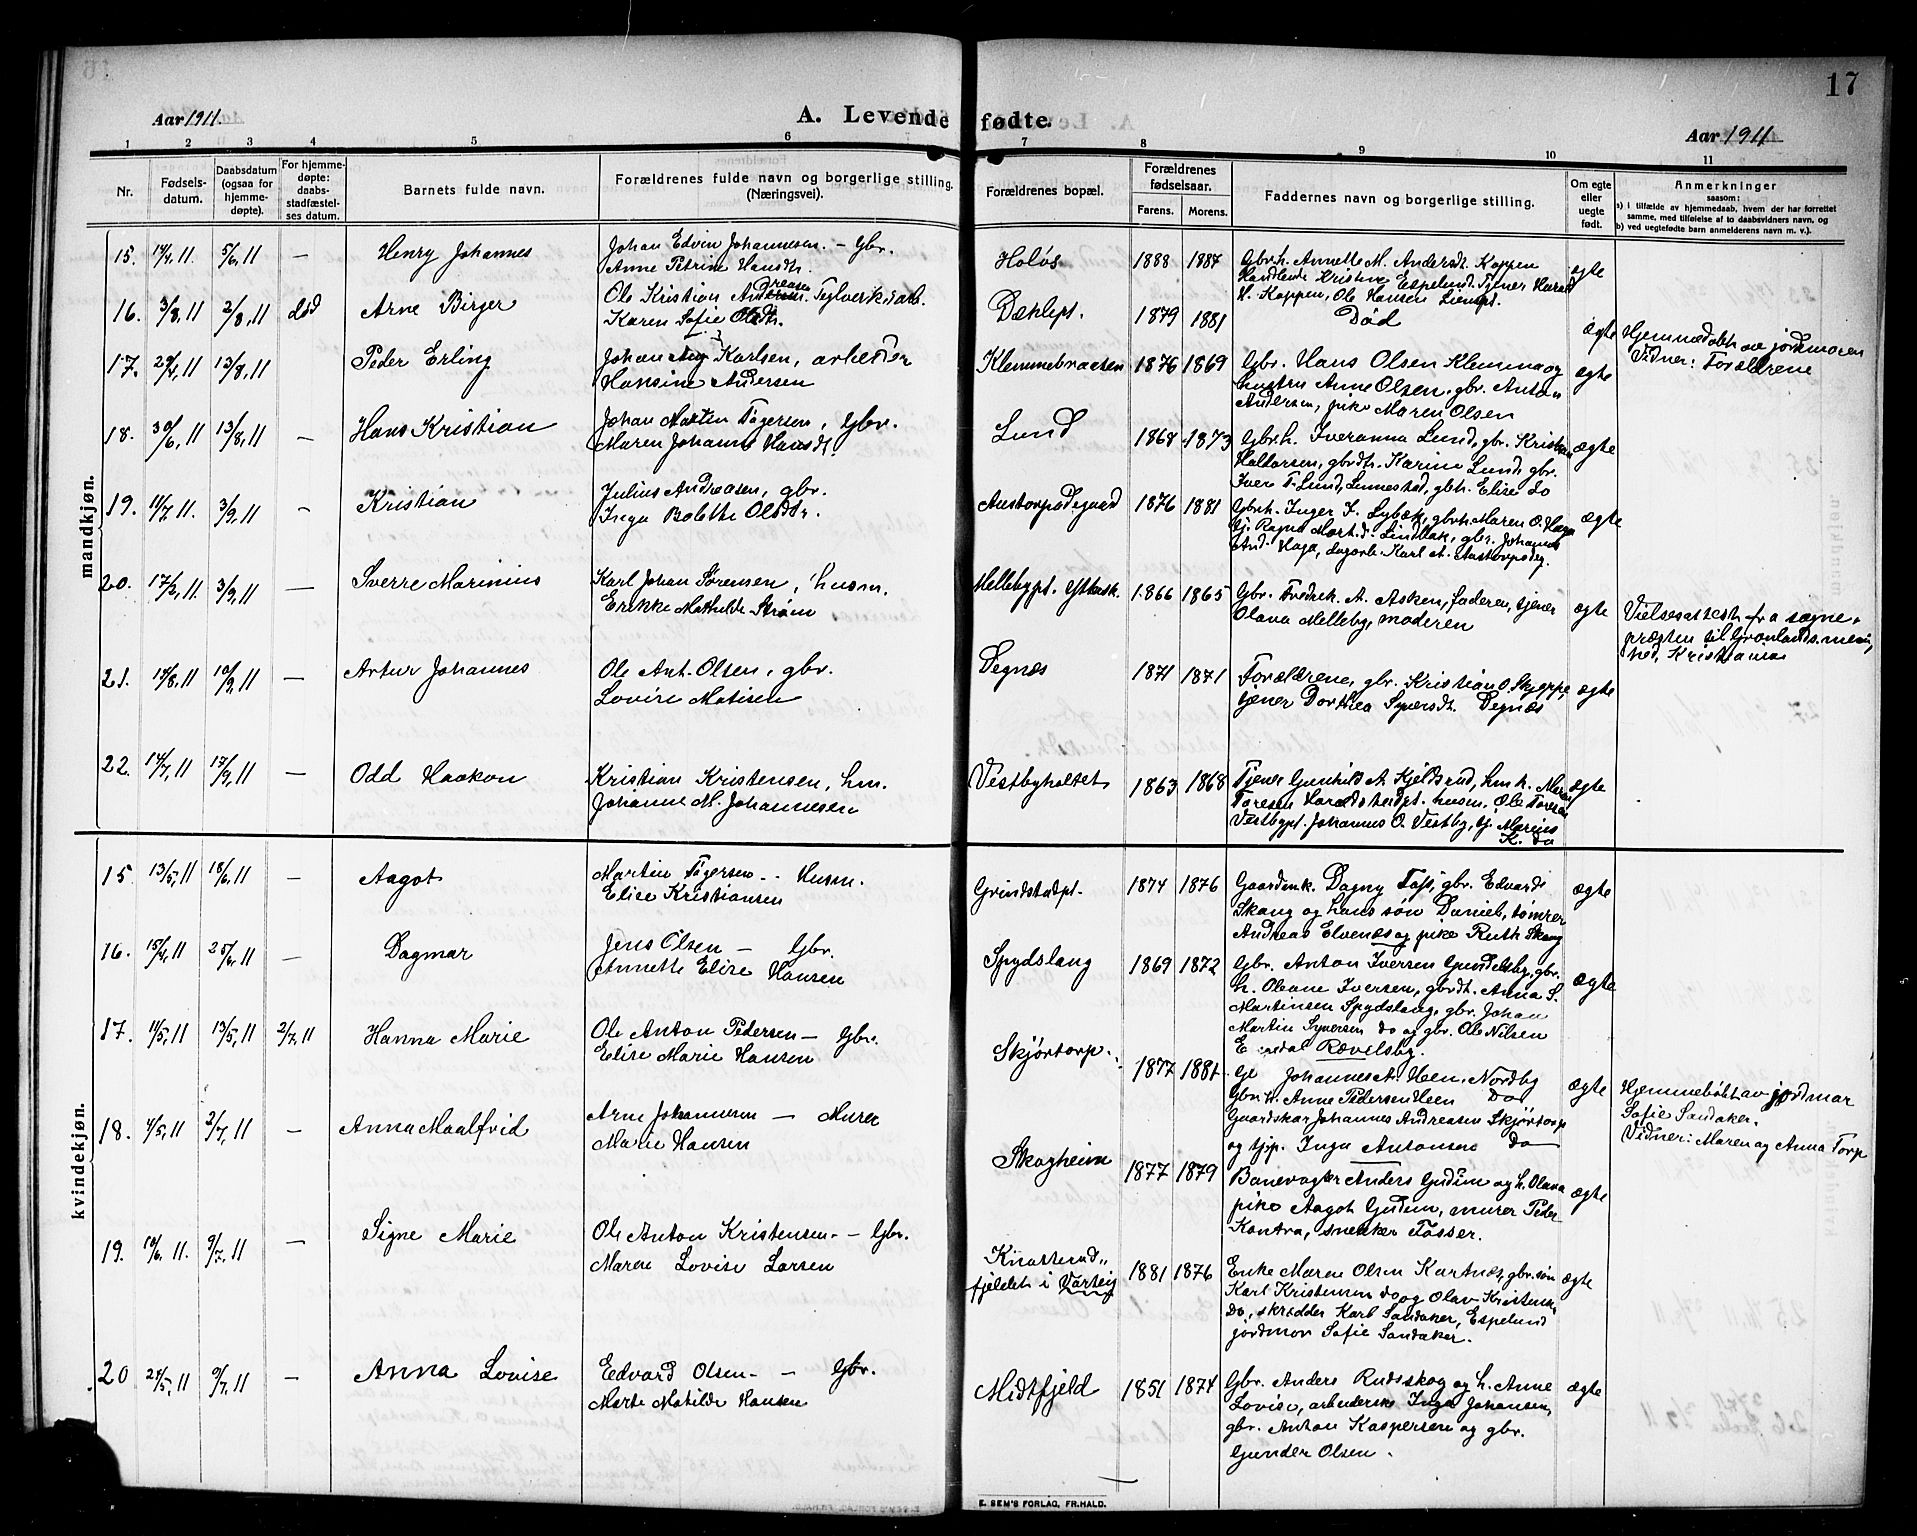 17
Aar 1911.
A. Levende fødte.
Aar 1911
1 2 3 4 5 6 7 8 9 10 11
Nr.
Fødsels-
datum.
Daabsdatum
(ogsaa for
hjemme-
døpte).
For hjemme-
døpte:
daabs-
stadfæstel-
ses datum.
Barnets fulde navn.
Forældrenes fulde navn og borgerlige stilling.
(Næringsvei).
Forældrenes bopæl.
Forældrenes
fødselsaar.
Farens. Morens.
Faddernes navn og borgerlige stilling.
Om egte
eller
uegte
født.
Anmerkninger
saasom:
a) i tilfælde av hjemmedaab, hvem der har forrettet
samme, med tilføielse af to daabsvidners navn, og
b) ved uegtefødte barn anmelderens navn m. v.).
mandkjøn.
15. 14/4, 11. 5/6, 11 — Henry Johannes
Johan Edvin Johannesen. — Gbr.
Anne Petrine Hansdtr.
Holøs 1888 1887
Gbr.h. Annette M. Andersdt. Koppen
Handlende Kristine Espelund. Tjener Harald
H. Koppen, Ole Hansen
ægte
16. 3/8, 11 2/8, 11 død Arne Birger
Ole Kristian Andreasen. Teglverksarb.
Karen Sofie Olsdtr.
Dæhlept. 1879 1881
Død
ægte
Hjemmedøbt av jordmoren
Vidner: Forældrene
17. 29/4, 11 13/8, 11 Peder Erling
Johan Aug Karlsen, arbeider
Hansine Andersen
Klemmebraaten 1876 1869
Gbr. Hans Olsen Klemma og
hustru Anne Olsen, gbr. Anton
Andersen, pike Maren Olsen
ægte
18. 30/6, 11 13/8, 11 — Hans Kristian
Johan Martin Tøgersen, Gbr.
Maren Johanne Hansdt.
Lund 1868 1873
Gbr.h. Iveranna Lund, gbr. Kristian
Haltorsen, gbrdt. Karine Lund, gbr.
Iver T. Lund, Lunnestad, gbh. Elise do
ægte
19. 11/7, 11. 3/9, 11 — Kristian
Julius Andreasen, gbr.
Inga Bolette Olsdtr.
Aastorpødegaard 1876 1881
Gbrh. Inger J. Lybæk, gbrh. Maren O. Haga
tj. Ragna Mart.d. Lindbak, gbr. Johannes
And. Haga, dagarb. Karl A. Aastorpødeg.
ægte
20. 17/2, 11 3/9, 11 — Sverre Marinius
Karl Johan Sørensen, husm.
Erikke Mathilde Strøm
Mellebypt. Ytkrsk. 1866 1865
Gbr. Fredrek A. Asken, faderen, tjener
Olava Melleby, moderen
ægte
Vielsesattest fra sogne-
præsten til Grønlands menig
hed, Kristiania
21. 14/8, 11 10/9, 11 — Artur Johannes
Ole Ant. Olsen, gbr.
Lovise Matisen
Degnæs 1871 1871
Forældrene, gbr. Kristian O. Skjeppe,
tjener Dorthea Syversdt. Degnæs
ægte
22. 14/7, 11 17/9, 11 — Odd Haakon
Kristian Kristensen, hm.
Johanne M. Johannesen
Vestbyholtet 1863 1868
Tjener Gunhild A. Kjeldsrud, hm.h. Maren
Toresen Harædstadpt. husm. Ole Toresen
Vestbypt. Johannes O. Vestby, tj. Marius
K. do
ægte
kvindekjøn.
15 13/5, 11 18/6, 11 — Aagot
Martin Tøgersen — Husm.
Elise Kristiansen
Grindstadpt. 1874 1876
Gaardenk. Dagny Foss, gbr. Edvard
Skaug og hans søn Daniel, tømrer
Andreas Elvenes og pike Ruth Skaug
ægte
16. 15/4, 11 25/6, 11 — Dagmar
Jens Olsen — Gbr.
Annette Elise Hansen
Spydslaug 1869 1872
Gbr. Anton Iversen Gundelsby, gbr.
h. Oleane Iversen, gbrdt. Anna S.
Martinsen Spydslaug, gbr. Johan
Martin Syversen do og gbr. Ole Nilsen
Rævelsby.
ægte
17. 11/5, 11 13/5, 11 2/7, 11 Hanna Marie
Ole Anton Pedersen — Gbr.
Elise Marie Hansen
Skjørtorp. 1877 1881
Johannes A. Heen. Nordby
Gbr.h. Anne Pedersen Heen Do
Gaardskar Johannes Andreasen Skjørtorp
og tjp. Inga Antonsen Do
ægte
Hjemmedøbt av jordmor
Sofie Sandaker.
Vidner: Maren og Anna Torp
18. 4/5, 11 2/7, 11 — Anna Maalfrid
Arne Johannesen — Murer
Marie Hansen
Skogheim 1877 1879
Banevogter Anders Gudim og h. Olava
pike Aagot Gudim, murer Peder
Kantra, snekker Fosser.
ægte
19. 10/6, 11. 9/7, 11 — Signe Marie
Ole Anton Kristensen — Gbr.
Maren Lovise Larsen
Knatterud-
fjeldet i Varteig 1881 1876
Enke Maren Olsen Kartnes, gbr.søn
Karl Kristensen do og Olav Kristensen
do, skrædder Karl Sandaker, Espelund
jordmor Sofie Sandaker.
ægte
20 24/5, 11 9/7, 11 — Anna Lovise
Edvard Olsen — Gbr.
Marte Matilde Hansen
Midtfjeld 1851 1874
Gbr. Anders Rudsskog og h. Anne
Lovise, arbeiderske Inga Johansen,
gbr. Anton Kaspersen og gbr.
Gunder Olsen.
ægte
E. SEM'S FORLAG, FR.HALD.